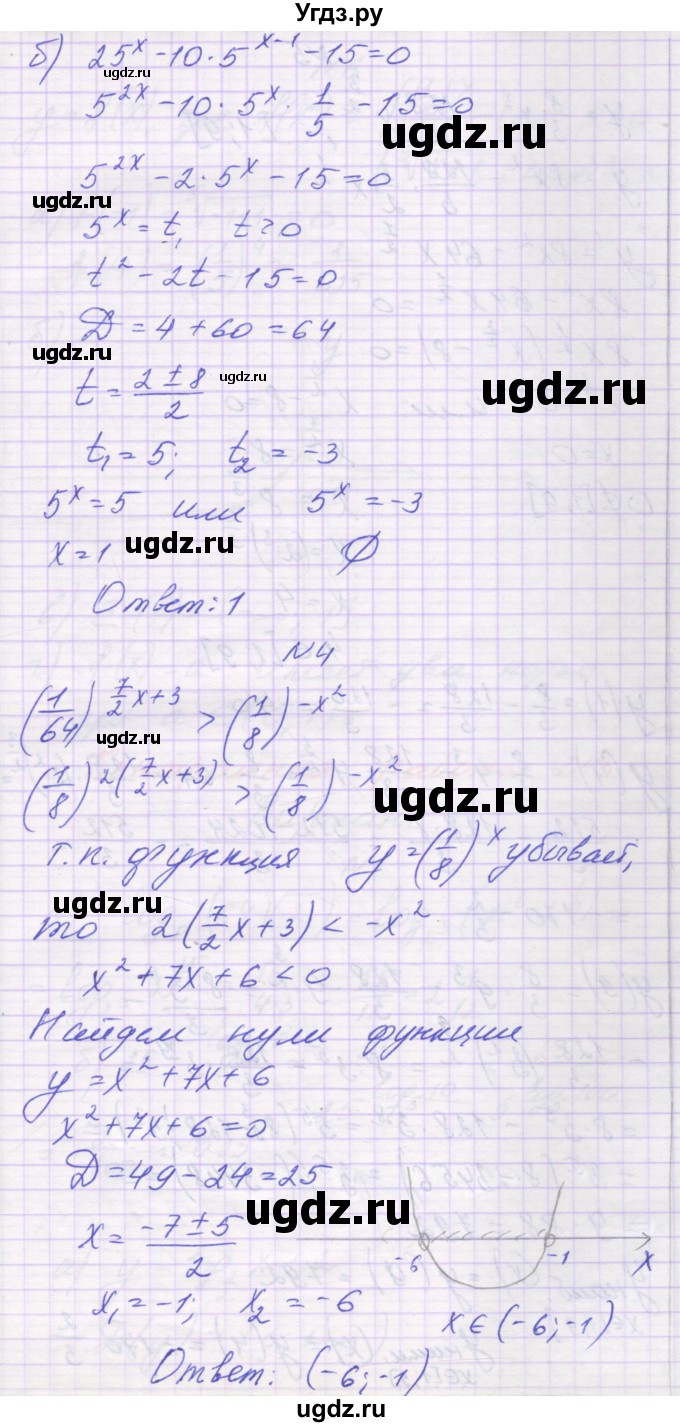 Угдз.ру
б) 25^x - 10 · 5^(x-1) - 15 = 0
ugdz.ru
5^(2x) - 10 · 5^x · 1/5 - 15 = 0
ugdz.ru
5^(2x) - 2 · 5^x - 15 = 0
ugdz.ru
5^x = t, t > 0
t^2 - 2t - 15 = 0
D = 4 + 60 = 64
ugdz.ru
t = (2 ± 8)/2
ugdz.ru
ugdz.ru
t₁ = 5; t₂ = -3
5^x = 5 или 5^x = -3
x = 1 ∅
ugdz.ru
Ответ: 1
N4
(1/64)^(7/2 x + 3) > (1/8)^(-x^2)
ugdz.ru
(1/8)^(2(7/2 x + 3)) > (1/8)^(-x^2)
ugdz.ru
т.п. функция y = (1/8)^x убывает,
ugdz.ru
то 2(7/2 x + 3) < -x^2
x^2 + 7x + 6 < 0
Найдем нули функции
y = x^2 + 7x + 6
x^2 + 7x + 6 = 0
D = 49 - 24 = 25
ugdz.ru
x = (-7 ± 5)/2
-6 -1 x
x₁ = -1; x₂ = -6
x ∈ (-6; -1)
Ответ: (-6; -1)
ugdz.ru